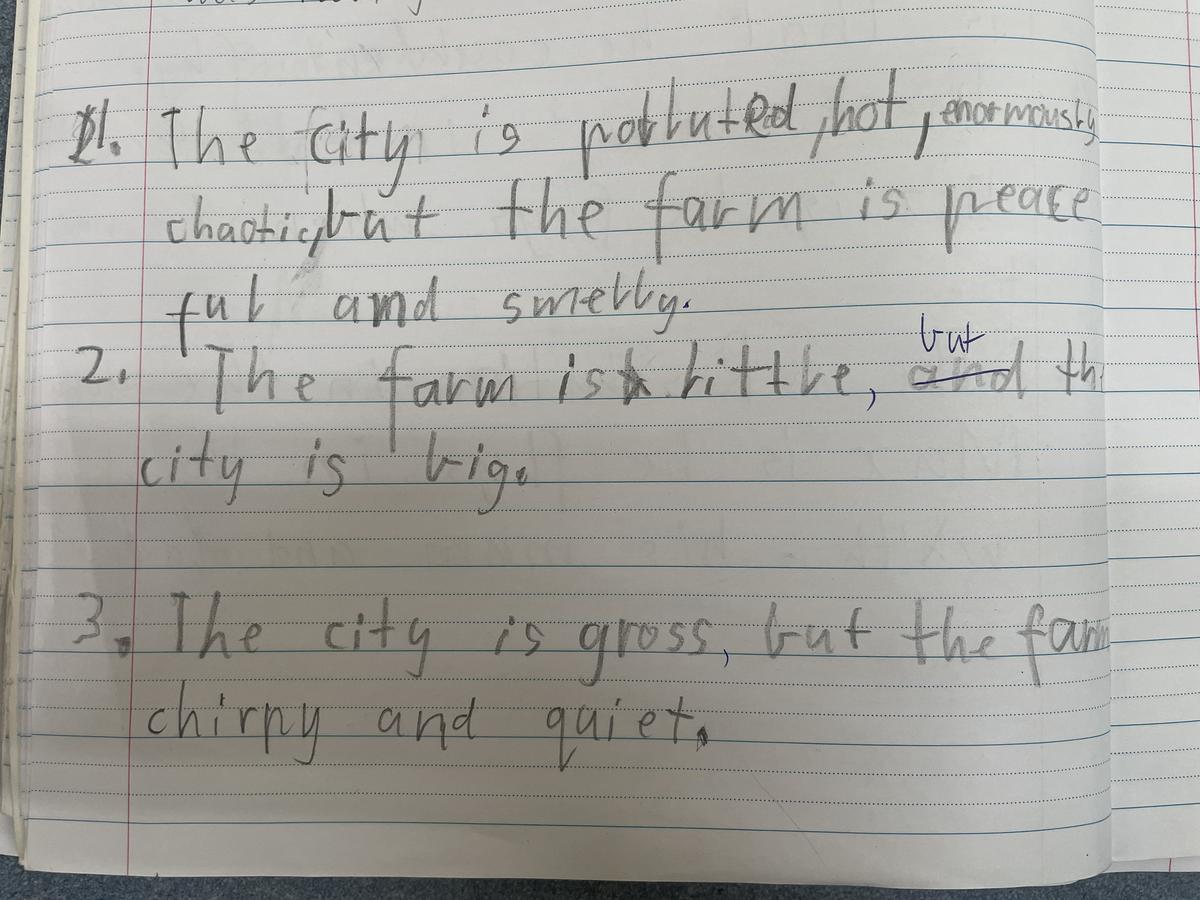 1. The city is polluted, hot, enormously
chaotic, but the farm is peace
ful and smelly.
2. The farm is little, but th
city is big.
3. The city is gross, but the farm
chirpy and quiet.